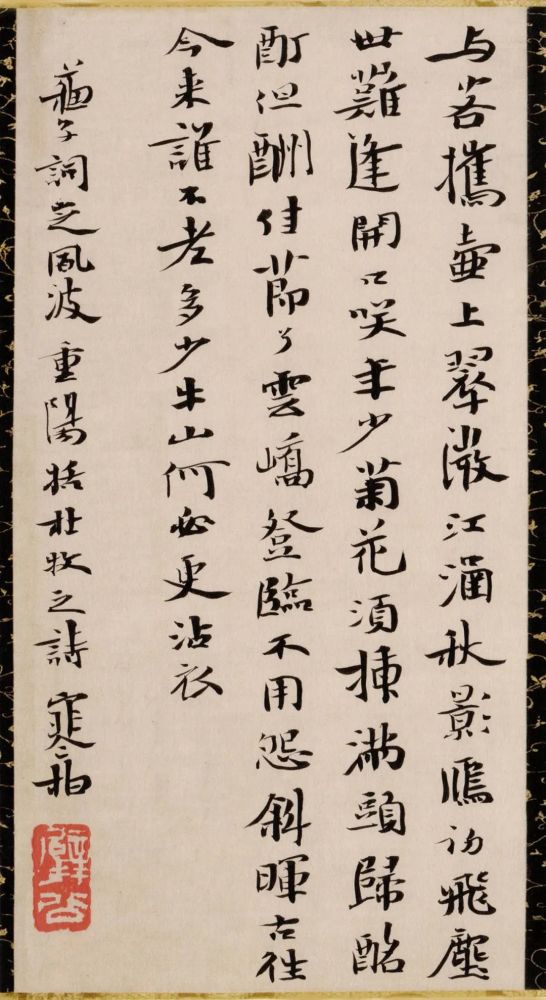 与客攜壺上翠微江涵秋影鴈初飛塵
世難逢開口咲年少菊花須插滿頭歸酩
酊但酬佳節了雲嶠登臨不用怨斜暉古往
今来誰不老多少牛山何必更沾衣
蘇子詞定風波 重陽括杜牧之詩 寒柏